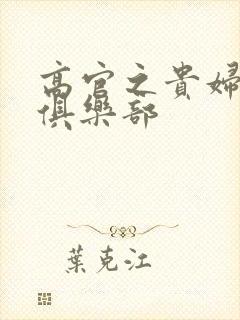 高官之貴婦
俱樂部
葉克江